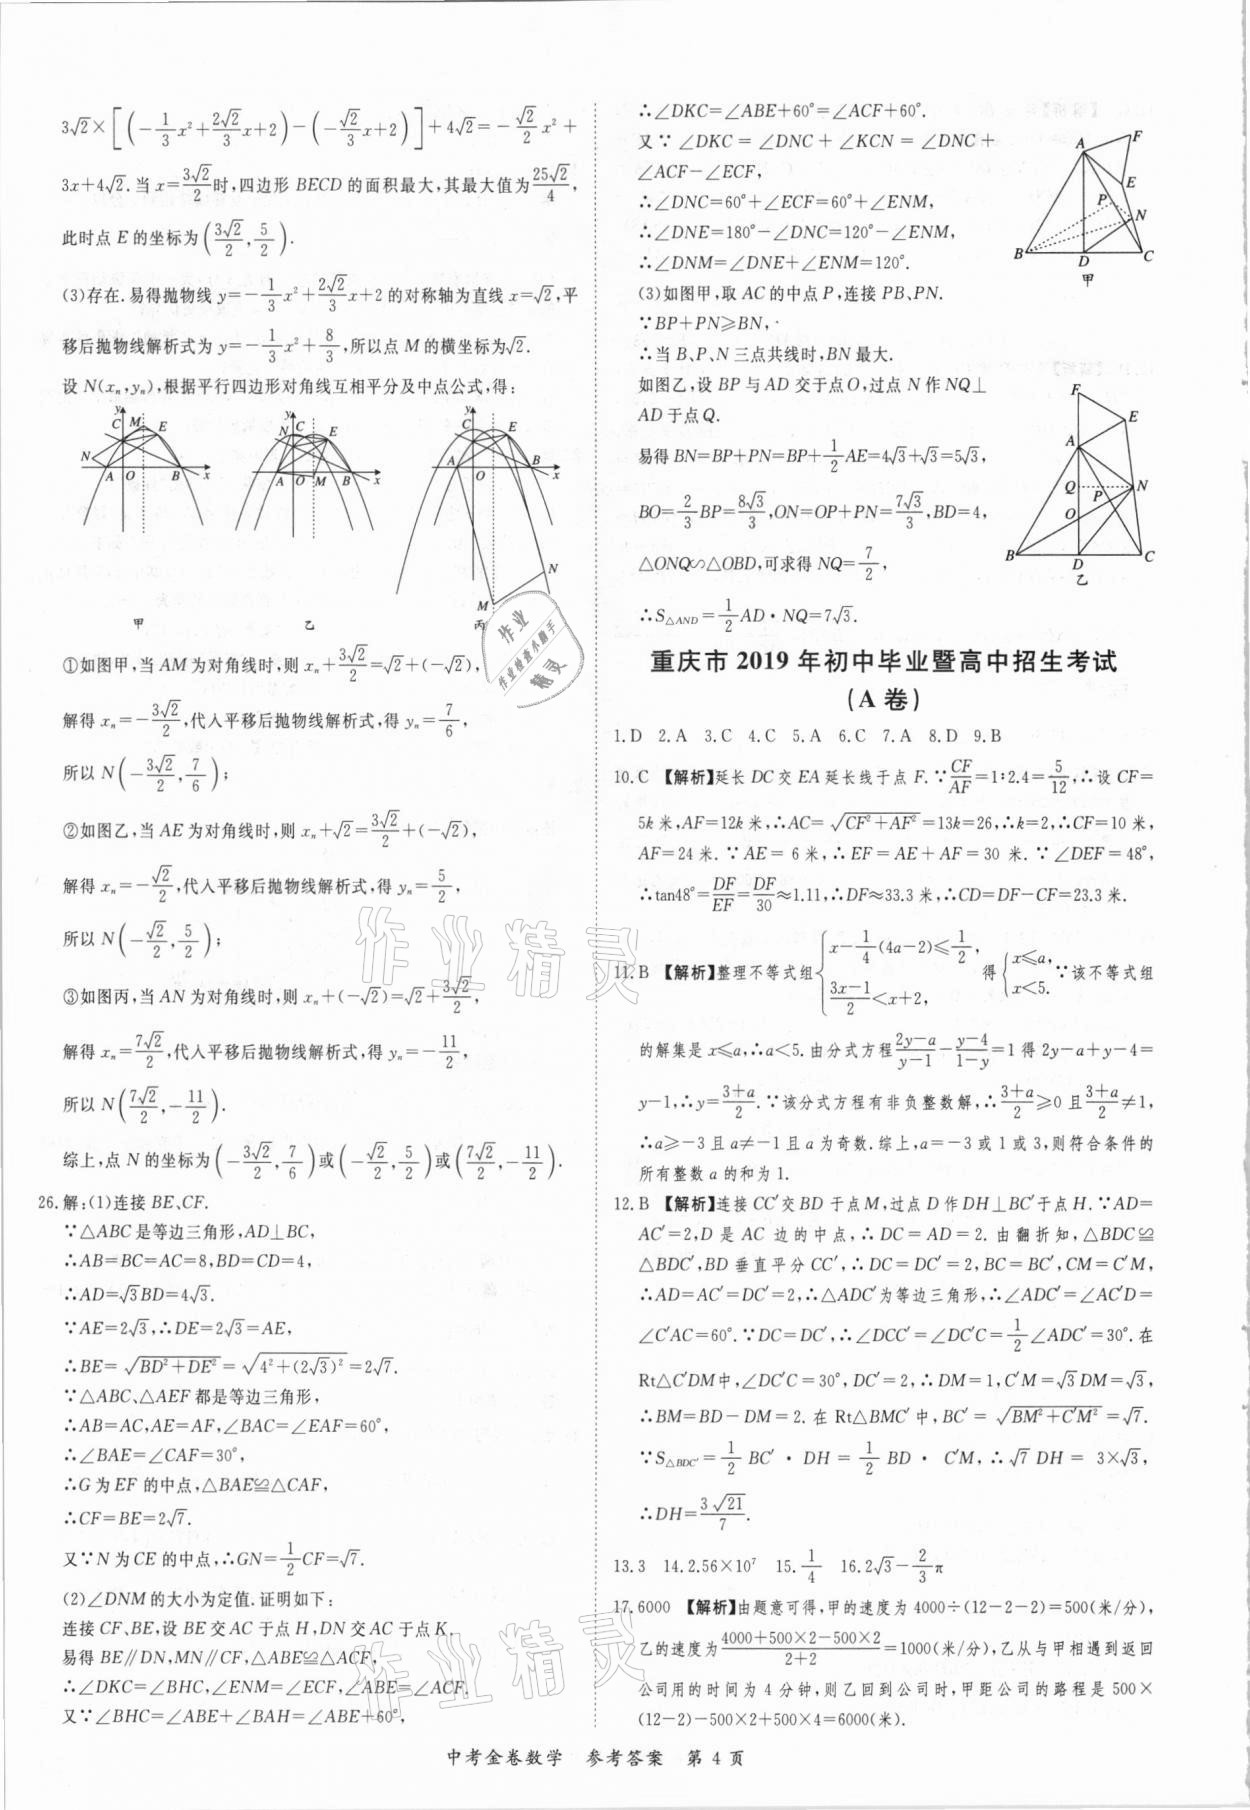 3√2×[(-1/3x²+2√2/3x+2)-(-√2/3x+2)]+4√2=-√2/2x²+
3x+4√2.当x=3√2/2时,四边形BECD的面积最大,其最大值为25√2/4,
此时点E的坐标为(3√2/2,5/2).
(3)存在.易得抛物线y=-1/3x²+2√2/3x+2的对称轴为直线x=√2,平
移后抛物线解析式为y=-1/3x²+8/3,所以点M的横坐标为√2.
设N(xₙ,yₙ),根据平行四边形对角线互相平分及中点公式,得:
y C M E N A O B x
甲
y N C E A O M B x
乙
y C E A O B x N M
丙
①如图甲,当AM为对角线时,则xₙ+3√2/2=√2+(-√2),
解得xₙ=-3√2/2,代入平移后抛物线解析式,得yₙ=7/6,
所以N(-3√2/2,7/6);
②如图乙,当AE为对角线时,则xₙ+√2=3√2/2+(-√2),
解得xₙ=-√2/2,代入平移后抛物线解析式,得yₙ=5/2,
所以N(-√2/2,5/2);
③如图丙,当AN为对角线时,则xₙ+(-√2)=√2+3√2/2,
解得xₙ=7√2/2,代入平移后抛物线解析式,得yₙ=-11/2,
所以N(7√2/2,-11/2).
综上,点N的坐标为(-3√2/2,7/6)或(-√2/2,5/2)或(7√2/2,-11/2).
26.解:(1)连接BE、CF.
∵△ABC是等边三角形,AD⊥BC,
∴AB=BC=AC=8,BD=CD=4,
∴AD=√3BD=4√3.
∵AE=2√3,∴DE=2√3=AE,
∴BE=√(BD²+DE²)=√(4²+(2√3)²)=2√7.
∵△ABC、△AEF都是等边三角形,
∴AB=AC,AE=AF,∠BAC=∠EAF=60°,
∴∠BAE=∠CAF=30°,
∴G为EF的中点,△BAE≌△CAF,
∴CF=BE=2√7.
又∵N为CE的中点,∴GN=1/2CF=√7.
(2)∠DNM的大小为定值.证明如下:
连接CF、BE,设BE交AC于点H,DN交AC于点K,
易得BE∥DN,MN∥CF,△ABE≌△ACF,
∴∠DKC=∠BHC,∠ENM=∠ECF,∠ABE=∠ACF.
又∵∠BHC=∠ABE+∠BAH=∠ABE+60°,
∴∠DKC=∠ABE+60°=∠ACF+60°.
又∵∠DKC=∠DNC+∠KCN=∠DNC+
∠ACF-∠ECF,
∴∠DNC=60°+∠ECF=60°+∠ENM,
∴∠DNE=180°-∠DNC=120°-∠ENM,
∴∠DNM=∠DNE+∠ENM=120°.
(3)如图甲,取AC的中点P,连接PB、PN.
∵BP+PN≥BN,
∴当B、P、N三点共线时,BN最大.
如图乙,设BP与AD交于点O,过点N作NQ⊥
AD于点Q.
易得BN=BP+PN=BP+1/2AE=4√3+√3=5√3,
BO=2/3BP=8√3/3,ON=OP+PN=7√3/3,BD=4,
△ONQ∽△OBD,可求得NQ=7/2,
∴S△AND=1/2AD·NQ=7√3.
A F E P N B D C
甲
F E A Q P N O B D C
乙
重庆市2019年初中毕业暨高中招生考试
(A卷)
1.D 2.A 3.C 4.C 5.A 6.C 7.A 8.D 9.B
10.C 【解析】延长DC交EA延长线于点F.∵CF/AF=1∶2.4=5/12,∴设CF=
5k米,AF=12k米,∴AC=√(CF²+AF²)=13k=26,∴k=2,∴CF=10米,
AF=24米.∵AE=6米,∴EF=AE+AF=30米.∵∠DEF=48°,
∴tan48°=DF/EF=DF/30≈1.11,∴DF≈33.3米,∴CD=DF-CF=23.3米.
11.B 【解析】整理不等式组{x-1/4(4a-2)≤1/2, (3x-1)/2<x+2, 得{x≤a, x<5. ∵该不等式组
的解集是x≤a,∴a<5.由分式方程(2y-a)/(y-1)-(y-4)/(1-y)=1得2y-a+y-4=
y-1,∴y=(3+a)/2.∵该分式方程有非负整数解,∴(3+a)/2≥0且(3+a)/2≠1,
∴a≥-3且a≠-1且a为奇数.综上,a=-3或1或3,则符合条件的
所有整数a的和为1.
12.B 【解析】连接CC′交BD于点M,过点D作DH⊥BC′于点H.∵AD=
AC′=2,D是AC边的中点,∴DC=AD=2.由翻折知,△BDC≌
△BDC′,BD垂直平分CC′,∴DC=DC′=2,BC=BC′,CM=C′M,
∴AD=AC′=DC′=2,∴△ADC′为等边三角形,∴∠ADC′=∠AC′D=
∠C′AC=60°.∵DC=DC′,∴∠DCC′=∠DC′C=1/2∠ADC′=30°.在
Rt△C′DM中,∠DC′C=30°,DC′=2,∴DM=1,C′M=√3DM=√3,
∴BM=BD-DM=2.在Rt△BMC′中,BC′=√(BM²+C′M²)=√7.
∵S△BDC′=1/2BC′·DH=1/2BD·C′M,∴√7DH=3×√3,
∴DH=3√21/7.
13.3 14.2.56×10⁷ 15.1/4 16.2√3-2/3π
17.6000 【解析】由题意可得,甲的速度为4000÷(12-2-2)=500(米/分),
乙的速度为(4000+500×2-500×2)/(2+2)=1000(米/分),乙从与甲相遇到返回
公司用的时间为4分钟,则乙回到公司时,甲距公司的路程是500×
(12-2)-500×2+500×4=6000(米).
中考金卷数学 参考答案 第4页
作业精灵
作业精灵
作业
作业检查小助手
精灵